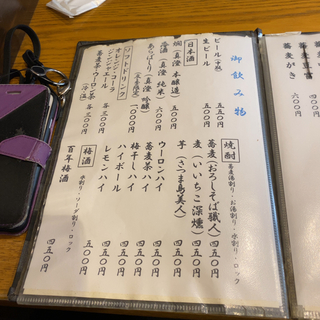 御飲み物
ビール(中瓶) 五五〇円
生ビール 五五〇円
日本酒
燗(真澄 本醸造) 五〇〇円
冷酒(真澄 純米) 六〇〇円
あらばしり(真澄 吟醸) 一〇〇〇円
ソフトドリンク
オレンジ・コーラ
ジンジャエール 各 三〇〇円
蕎麦茶・ウーロン茶
(冷・温) 各 三〇〇円
焼酎
蕎麦湯割り・お湯割り・水割り・ロック
蕎麦(おろしそば職人) 四五〇円
麦(いいちこ深燻) 四五〇円
芋(さつま島美人) 四五〇円
ウーロンハイ 四五〇円
蕎麦茶ハイ 四五〇円
梅干しハイ 四五〇円
ハイボール 四五〇円
レモンハイ 五〇〇円
梅酒
水割り・ソーダ割り・ロック
百年梅酒 四五〇円